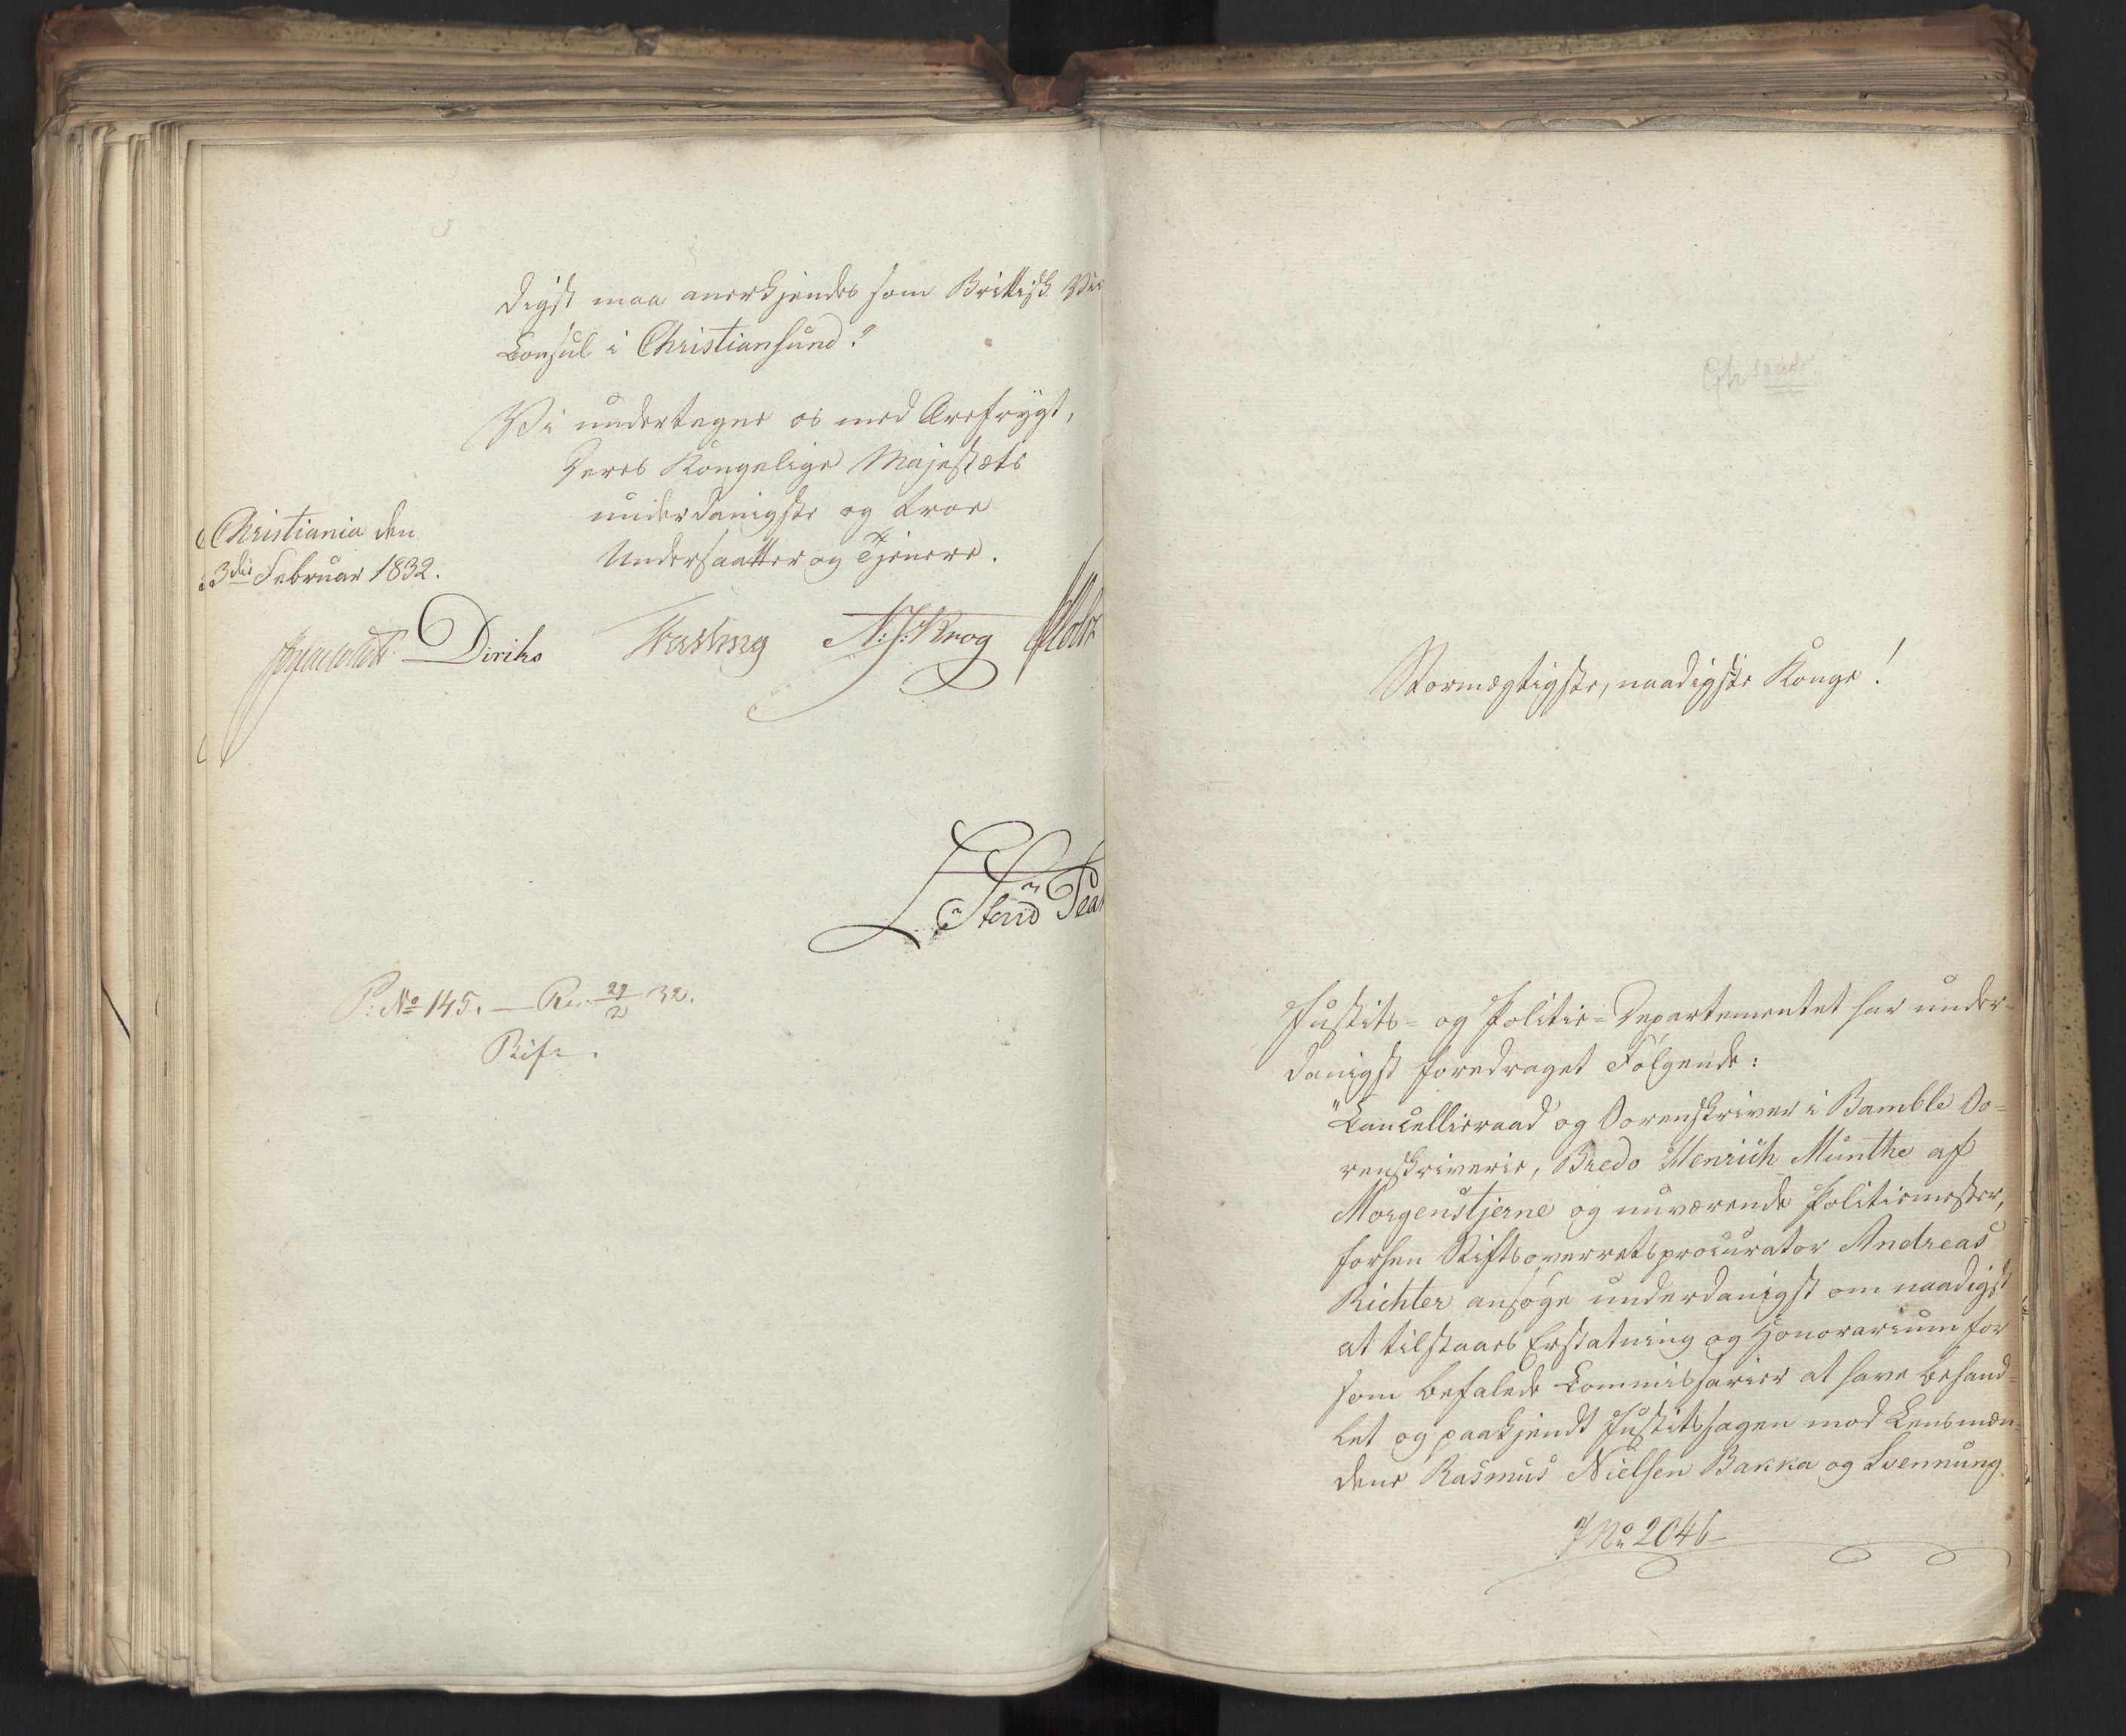 digst maa anerkjendes som Brittisk Vice
Consul i Christiansund?
Vi undertegne os med Ærefrygt,
Deres Kongelige Majestæts
underdanigste og troe
Undersaatter og Tjenere.
Christiania den
3die Februar 1832.
Diriks Fasting N. J. Krog Holst
P: No 145. — Res. 29/2 32.
Stormægtigste, naadigste Konge!
Justits- og Politie-Departementet har under-
danigst foredraget Følgende:
"Cancellieraad og Sorenskriver i Bamble So-
renskriverie, Bredo Henrich Munthe af
Morgenstjerne og nuværende Politiemester,
forhen Stiftsoverretsprocurator Andreas
Richter ansøge underdanigst om naadigst
at tilstaaes Erstatning og Honorarium for
som befalede Commissarier at have behand-
let og paakjendt Justitssagen mod Lensmæn-
dene Rasmus Nielsen Bakka og Svennung
J No 2046-